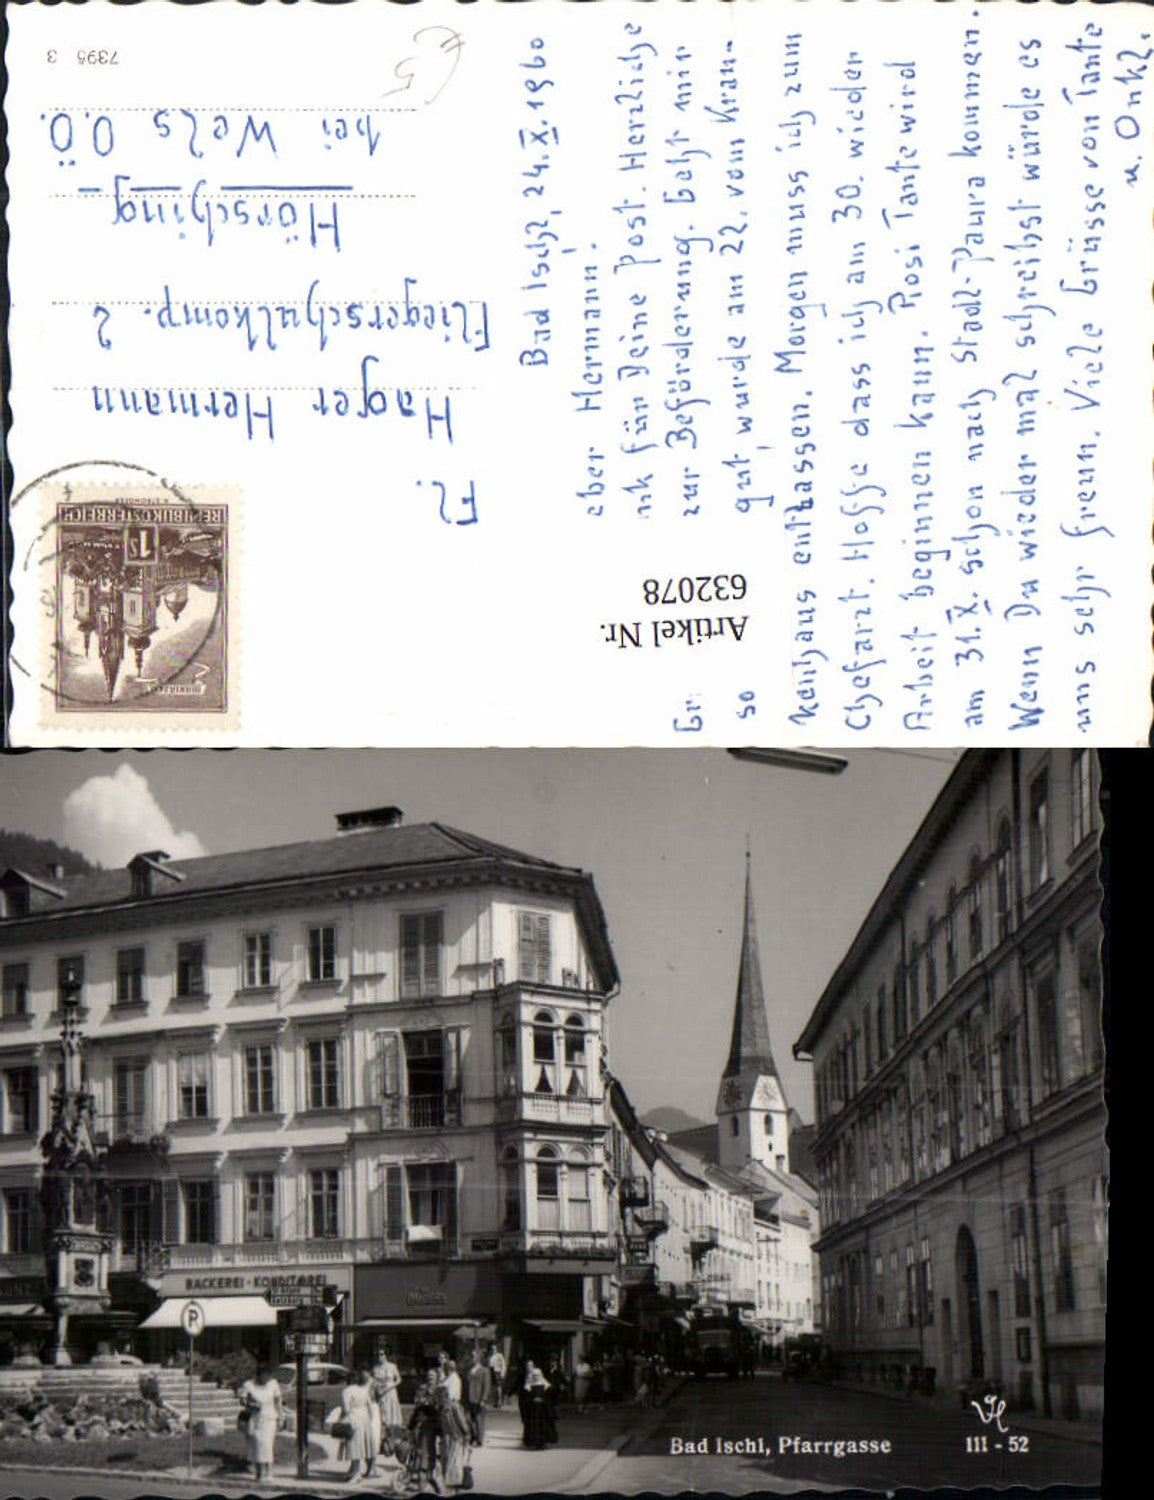 7395 3
€5
Fl.
Hager Hermann
Fliegerschulkomp. 2
Hörsching
bei Wels O.Ö.
REPUBLIK ÖSTERREICH
1S
Artikel Nr.
632078
Bad Ischl, 24.X.1960
eber Hermann.
nk für Deine Post. Herzliche
Gr zur Beförderung. Geht mir
so gut, wurde am 22. vom Kran-
kenhaus entlassen. Morgen muss ich zum
Chefarzt. Hoffe dass ich am 30. wieder
Arbeit beginnen kann. Rosi Tante wird
am 31.X. schon nach Stadl-Paura kommen.
Wenn Du wieder mal schreibst würde es
uns sehr freun. Viele Grüsse von Tante
u. Onkl.
BÄCKEREI-KONDITOREI
P
Bad Ischl, Pfarrgasse
III - 52